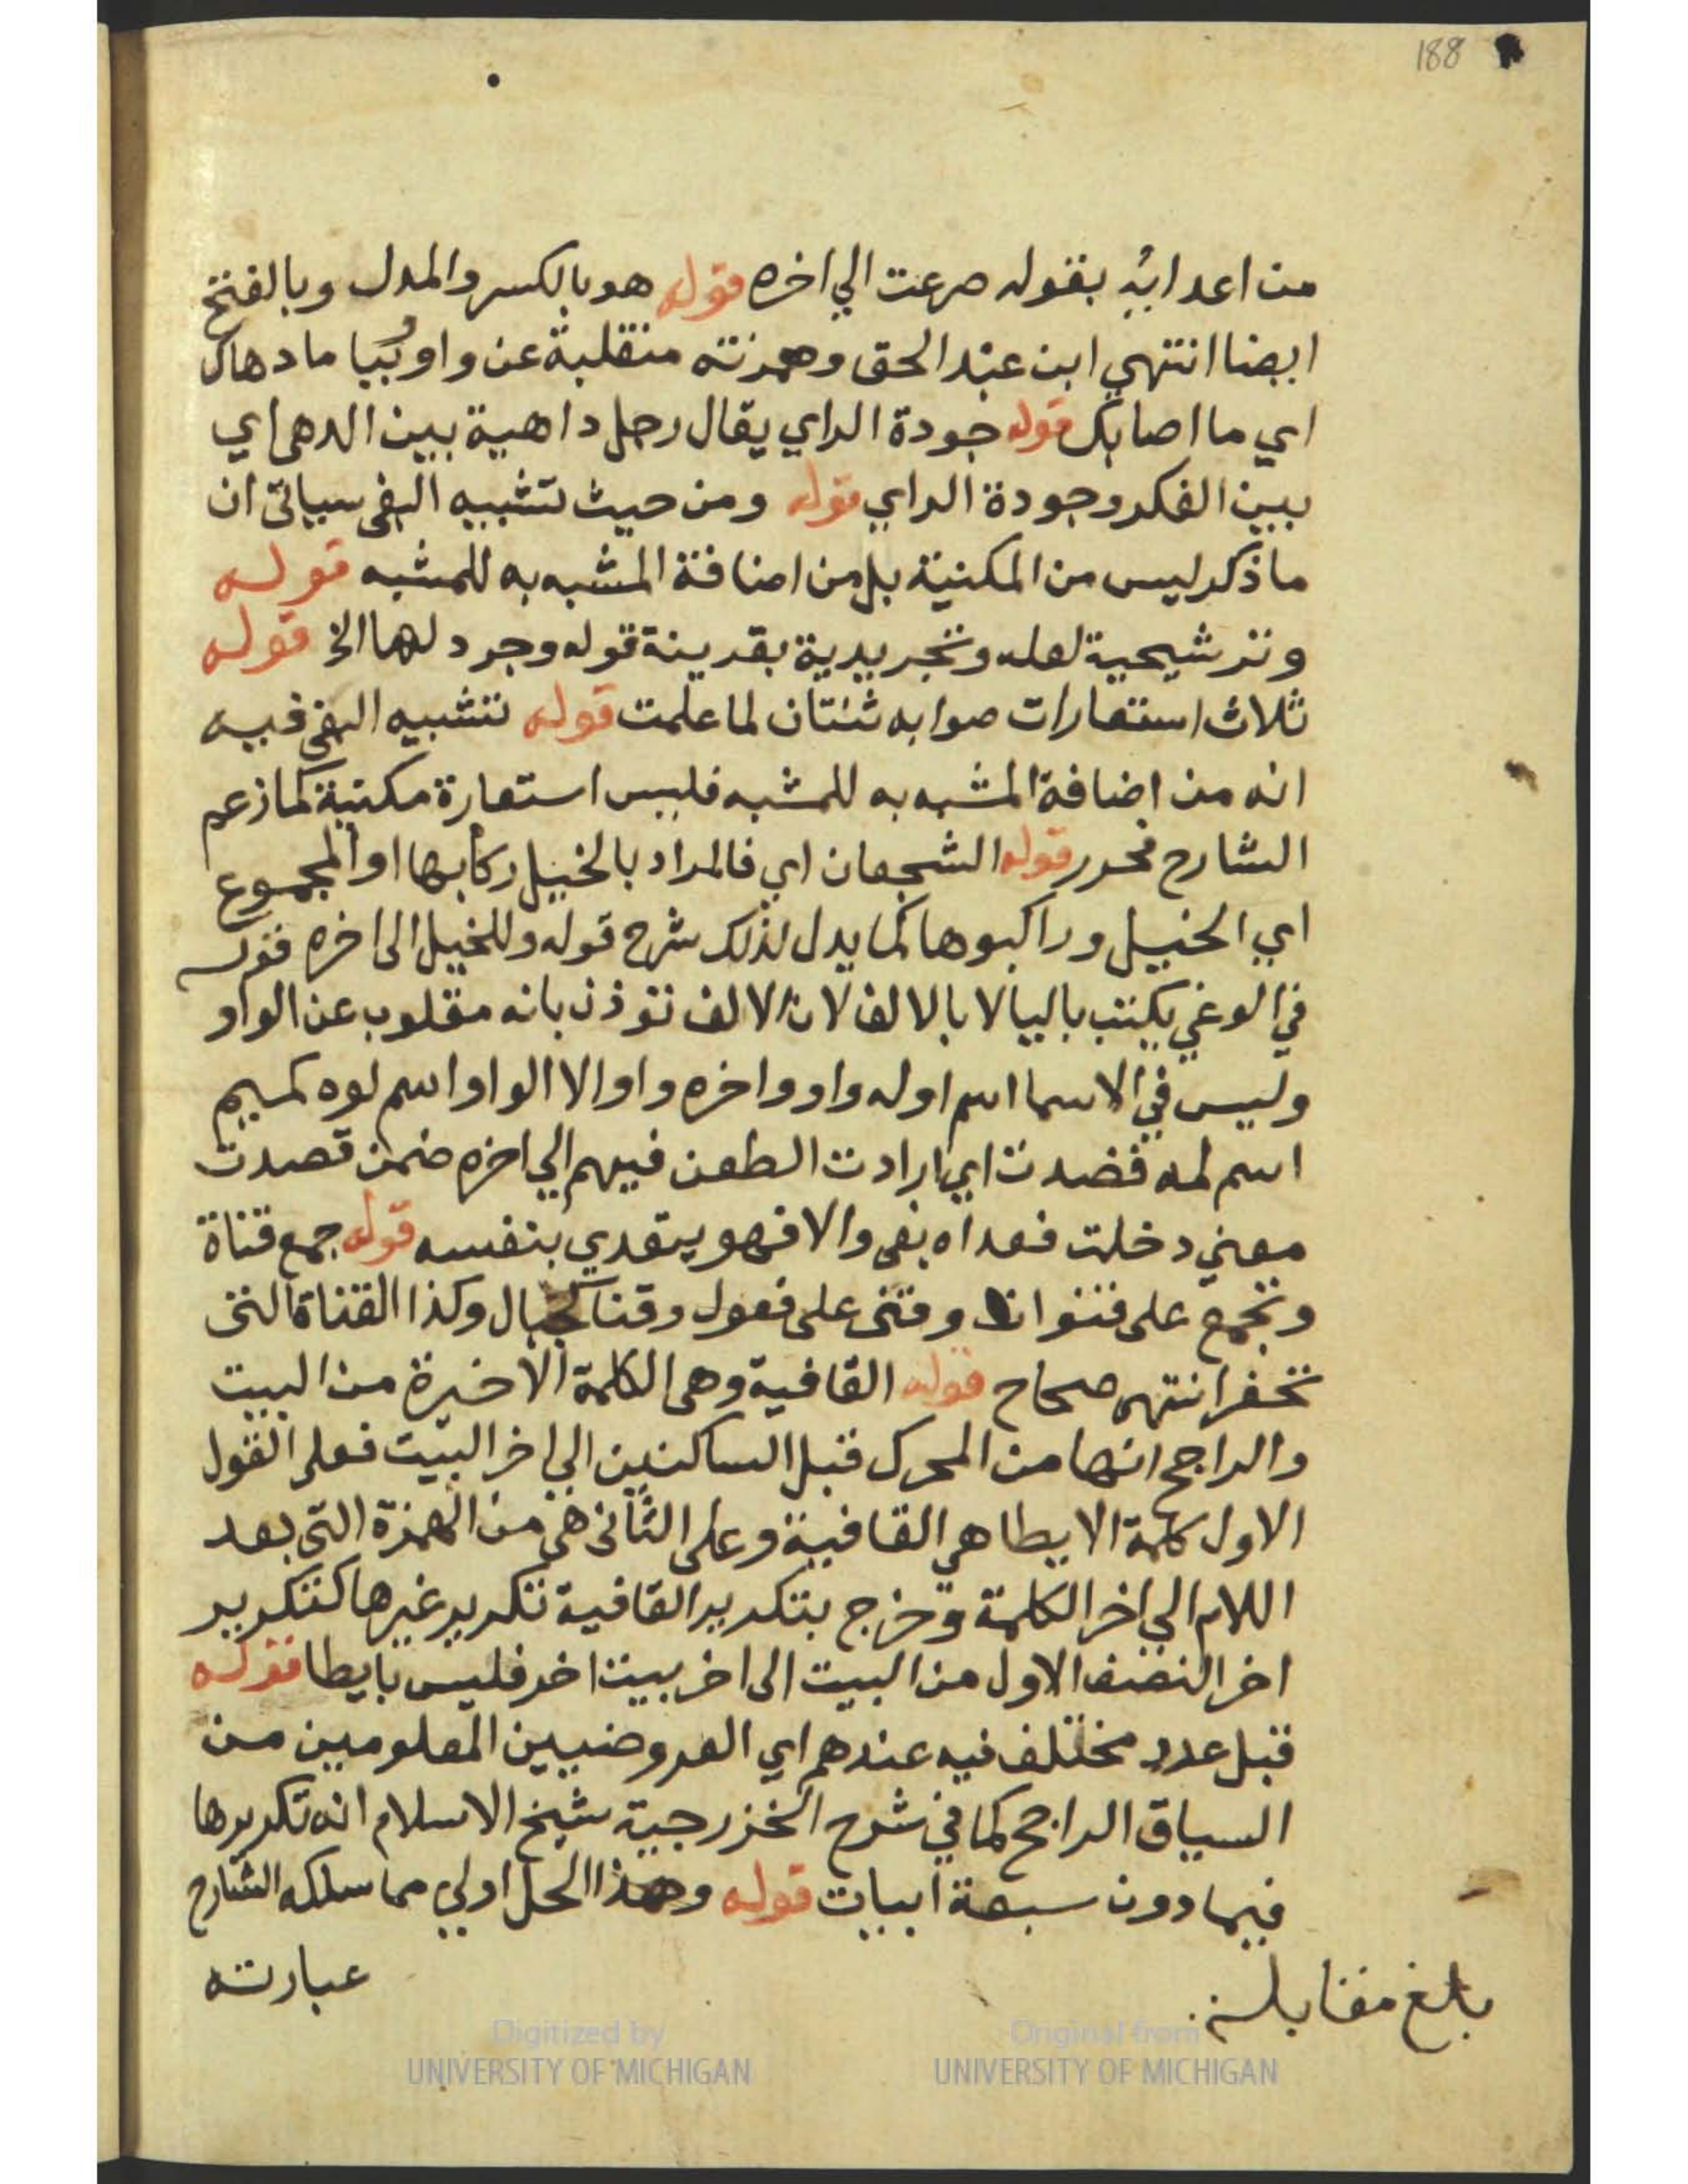 188
من اعدائه بقوله صرعت الي اخره قوله هو بالكسر والمدل وبالفتح
ايضا انتهي ابن عبد الحق وهمزته منقلبة عن واو ويا ما دهاك
اي ما اصابك قوله جودة الراي يقال رجل داهية بين الدهي اي
بين الفكر وجودة الراي قوله ومن حيث تشبيه الخ سياتى ان
ماذكر ليس من المكنية بل من اضافة المشبه به للمشبه قوله
وترشيحية لعله وتجريدية بقرينة قوله وجرد لها الخ قوله
ثلاث استعارات صوابه ثنتان لما علمت قوله تشبيه الخ فيه
انه من اضافة المشبه به للمشبه فليس استعارة مكنية كما زعم
الشارح فحرر قوله الشجعان اي فالمراد بالخيل ركابها او المجموع
اي الخيل وراكبوها كما يدل لذلك شرح قوله وللخيل الى اخره قوله
في الوغي يكتب باليا لا بالالف لان الالف توذن بانه مقلوب عن الواو
وليس في الاسما اسم اوله واو واخره واو الا الواو اسم لوه كميم
اسم لمه قصدت اي ارادت الطعن فيهم الي اخره ضمن قصدت
معني دخلت فعداه بفى والا فهو يتعدي بنفسه قوله جمع قناة
وتجمع على قنوات وقنى على فعول وقنا كجبال وكذا القناة التى
تحفر انتهى صحاح قوله القافية وهى الكلمة الاخيرة من البيت
والراجح انها من المحرك قبل الساكنين الي اخر البيت فعلى القول
الاول كلمة الايطا هي القافية وعلى الثانى هي من الهمزة التي بعد
اللام الي اخر الكلمة وخرج بتكرير القافية تكرير غيرها كتكرير
اخر النصف الاول من البيت الى اخر بيت اخر فليس بايطا قوله
قبل عدد مختلف فيه عندهم اي العروضيين المعلومين من
السياق الراجح كما في شرح الخزرجية شيخ الاسلام انه تكريرها
فيما دون سبعة ابيات قوله وهذا الحل اولي مما سلكه الشارح
عبارته
بلغ مقابلة
Digitized by
UNIVERSITY OF MICHIGAN
Original from
UNIVERSITY OF MICHIGAN